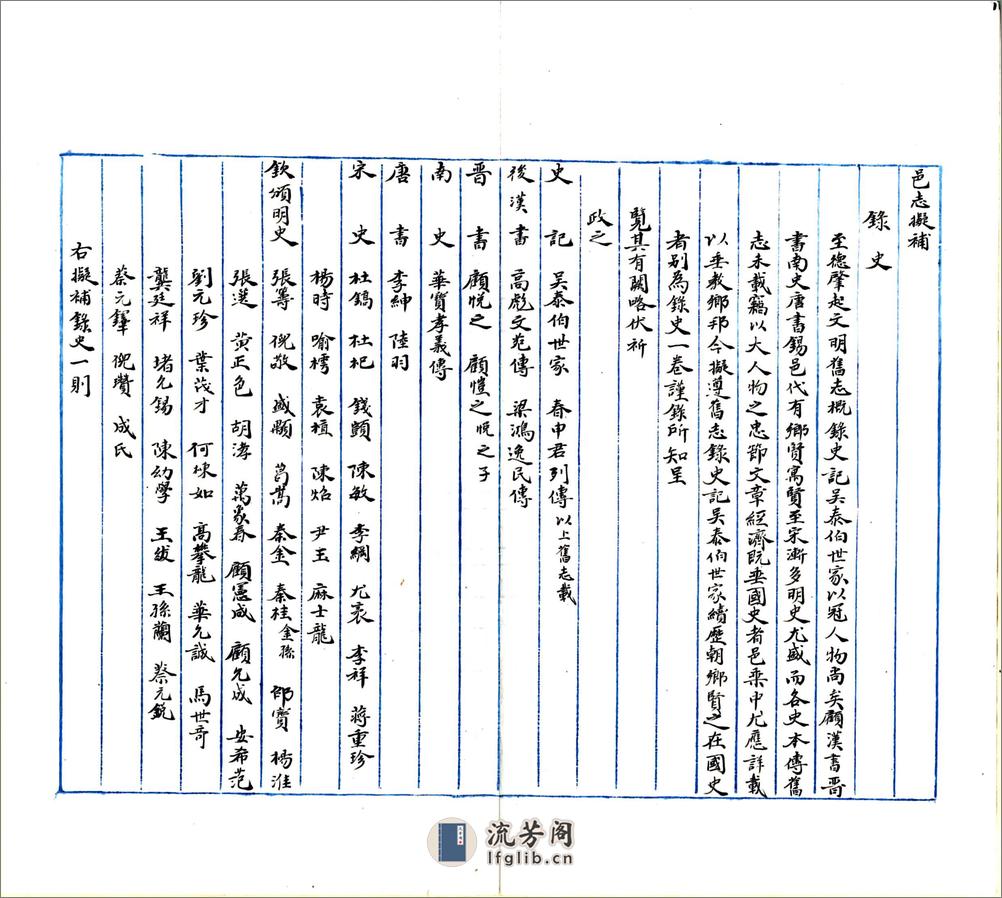 邑志擬補
錄史
至德肇起文明舊志概錄史記吳泰伯世家以冠人物尚矣顧漢書晋
書南史唐書錫邑代有鄉賢寓賢至宋漸多明史尤盛而各史本傳舊
志未載竊以大人物之忠節文章經濟既垂國史者邑乘中尤應詳載
以垂教鄉邦今擬遵舊志錄史記吳泰伯世家續歷朝鄉賢之在國史
者别為錄史一卷謹錄所知呈
覽其有闕略伏祈
政之
史記 吳泰伯世家 春申君列傳 以上舊志載
後漢書 高彪文苑傳 梁鴻逸民傳
晋書 顧悅之 顧愷之 悅之子
南史 華寶孝義傳
唐書 李紳 陸羽
宋史 杜鎬 杜杞 錢顗 陳敏 李綱 尤袤 李祥 蔣重珍
楊時 喻樗 袁植 陳炤 尹玉 麻士龍
欽頒明史 張籌 倪敬 盛顒 莴嵩 秦金 秦柱 金孫 邵寶 楊淮
張選 黄正色 胡涍 萬象春 顧憲成 顧允成 安希范
劉元珍 葉茂才 何棟如 高攀龍 華允誠 馬世奇
龔廷祥 堵允錫 陳幼學 王紱 王孫蘭 蔡元銳
蔡元鏵 倪瓚 成氏
右擬補錄史一則
流芳阁
lfglib.cn